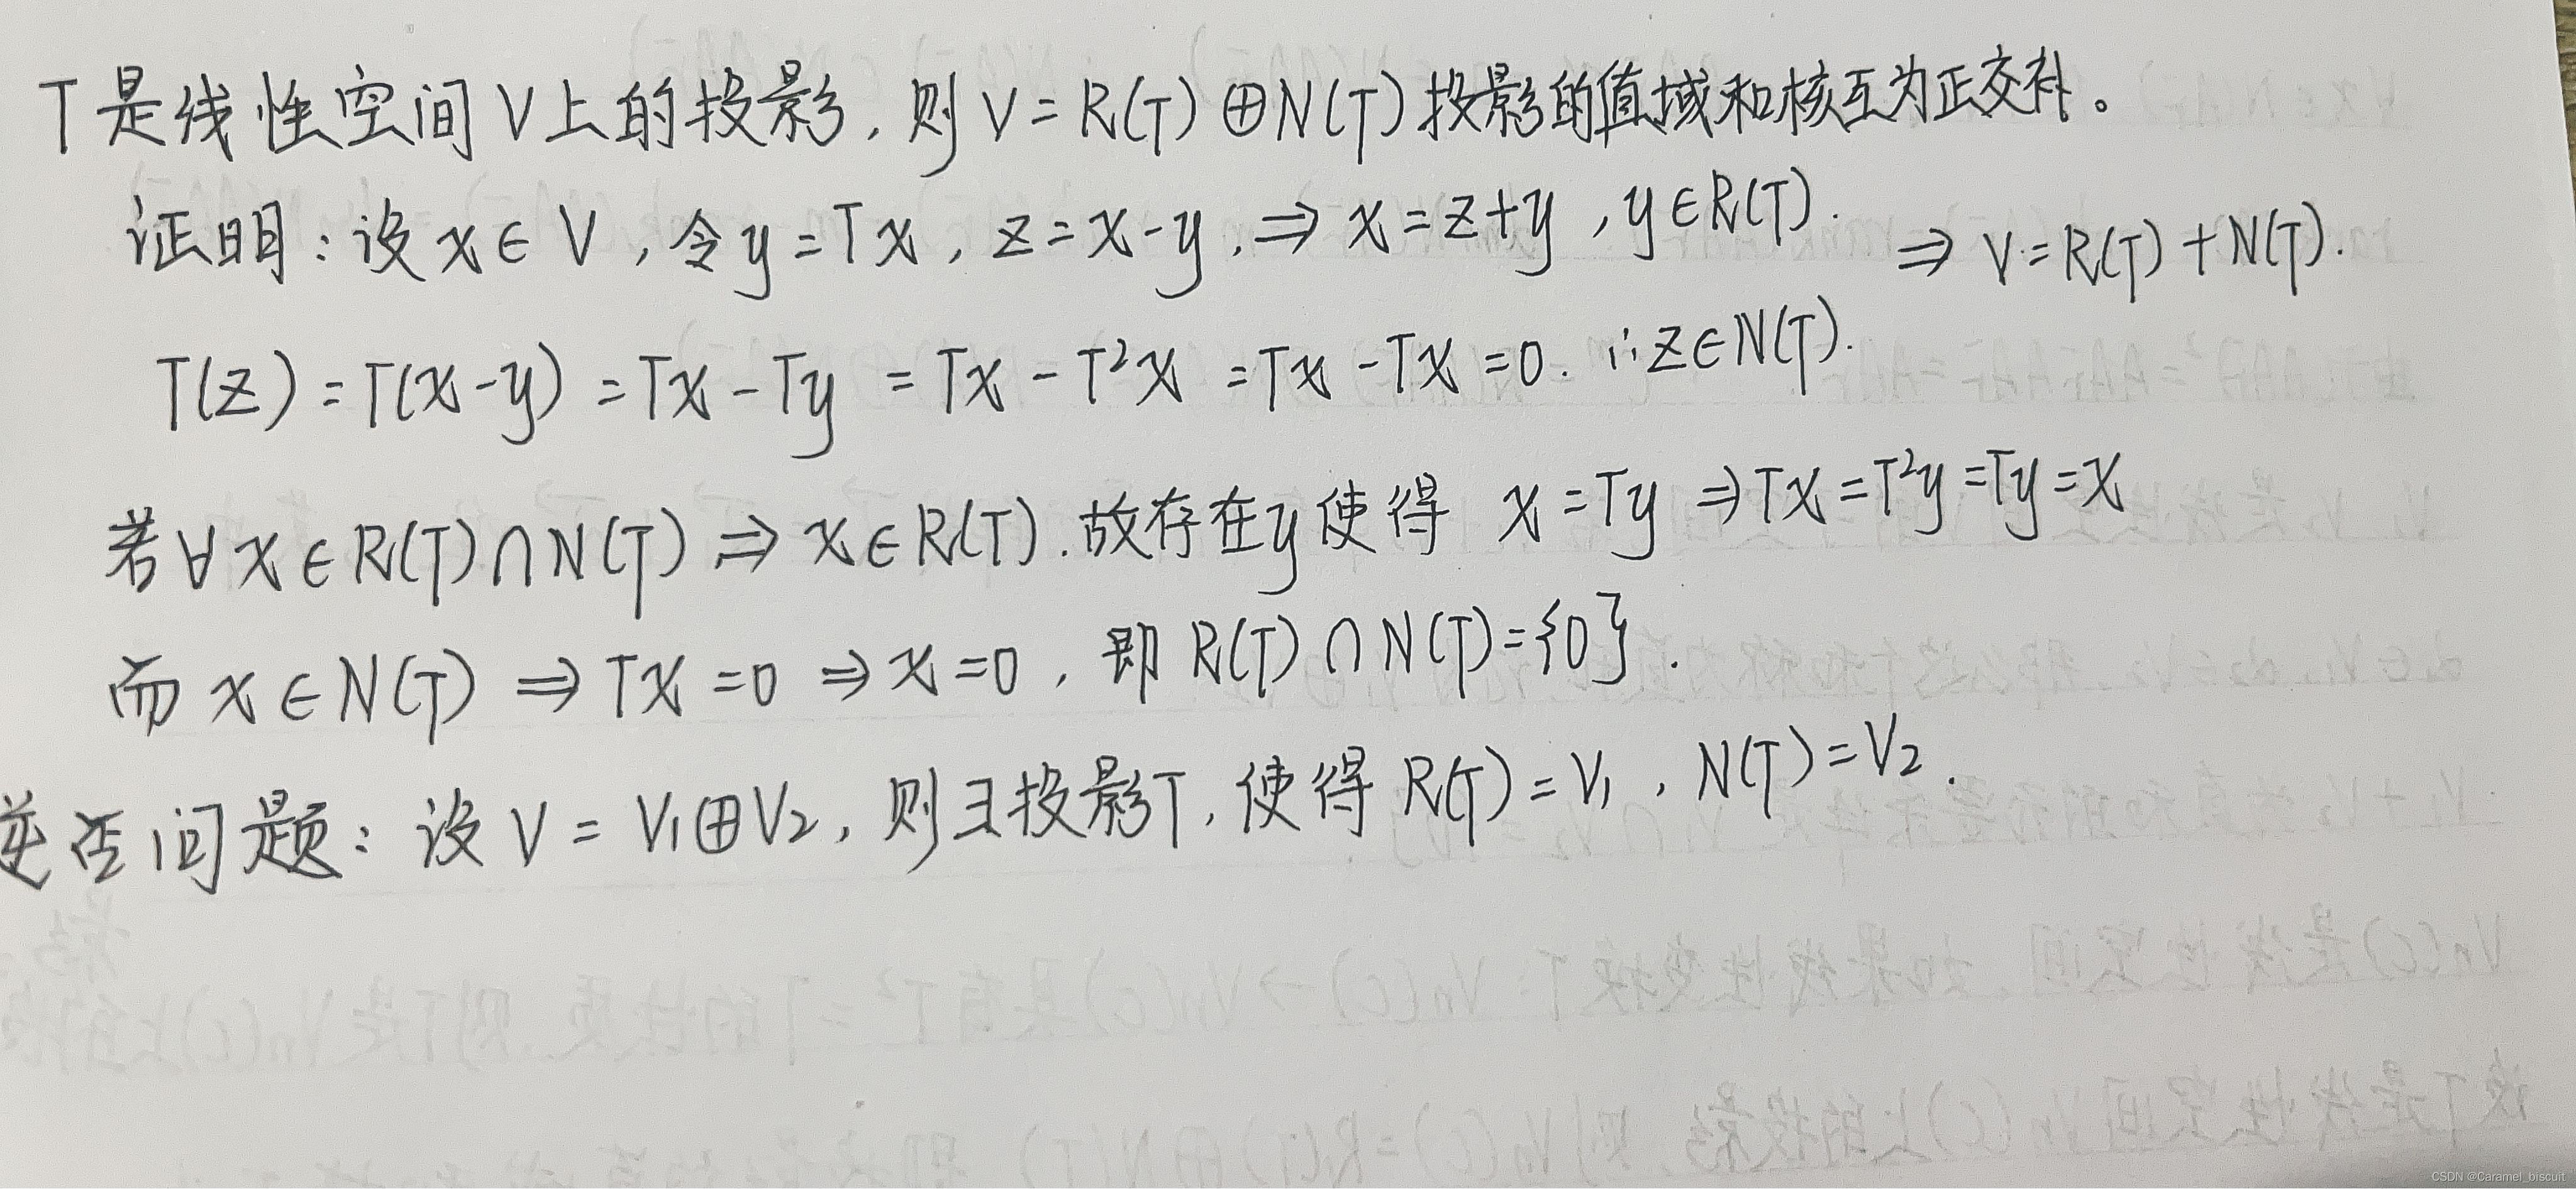 T是线性空间V上的投影,则V=R(T)⊕N(T)投影的值域和核互为正交补。
证明:设x∈V,令y=Tx,z=x-y,⇒x=z+y,y∈R(T).
⇒V=R(T)+N(T).
T(z)=T(x-y)=Tx-Ty=Tx-T²x=Tx-Tx=0.∴z∈N(T).
若∀x∈R(T)∩N(T)⇒x∈R(T).故存在y使得 x=Ty⇒Tx=T²y=Ty=x
而x∈N(T)⇒Tx=0⇒x=0,即R(T)∩N(T)={0}.
逆否问题:设V=V₁⊕V₂,则∃投影T,使得R(T)=V₁,N(T)=V₂.
CSDN @Caramel_biscuit